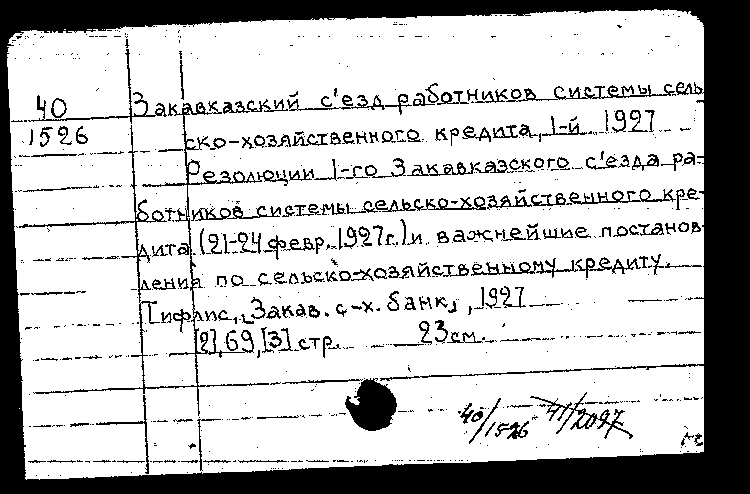 40
1526
Закавказский с'езд работников системы сель
ско-хозяйственного кредита, 1-й 1927
Резолюции 1-го Закавказского с'езда ра-
ботников системы сельско-хозяйственного кре-
дита (21-24 февр. 1927г.) и важнейшие постанов-
ления по сельско-хозяйственному кредиту.
Тифлис, "Закав. с-х. банк", 1927
[2], 69, [3] стр. 23 см.
40/1526 41/2097